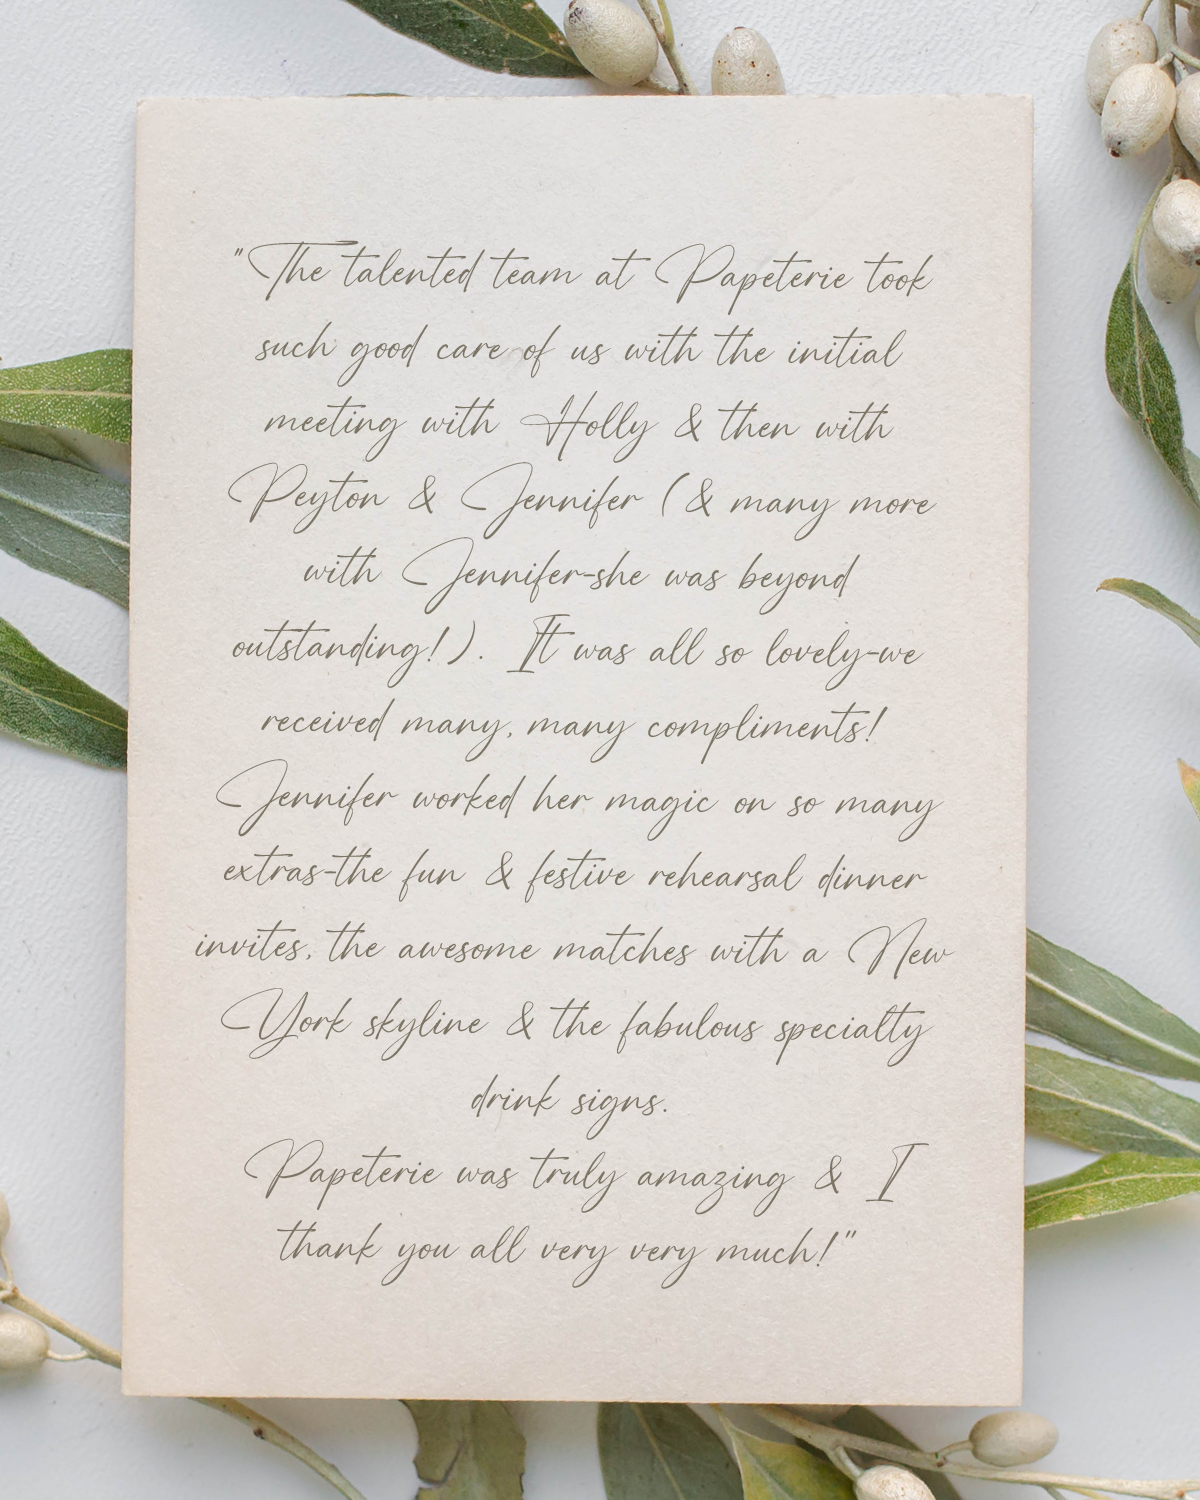 "The talented team at Papeterie took
such good care of us with the initial
meeting with Holly & then with
Peyton & Jennifer (& many more
with Jennifer-she was beyond
outstanding!). It was all so lovely-we
received many, many compliments!
Jennifer worked her magic on so many
extras-the fun & festive rehearsal dinner
invites, the awesome matches with a New
York skyline & the fabulous specialty
drink signs.
Papeterie was truly amazing & I
thank you all very very much!"